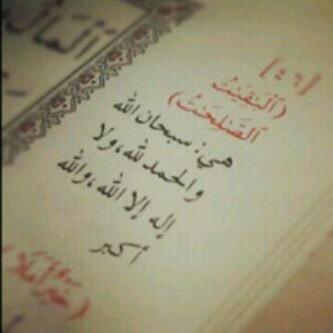 [٤٦]
(ٱلْبَٰقِيَٰتُ
ٱلصَّٰلِحَٰتُ)
هي: سبحان الله
والحمد لله، ولا
إله إلا الله، والله
أكبر
(خَيْرٌ أَمَلًا)
ٱلْمَالُ